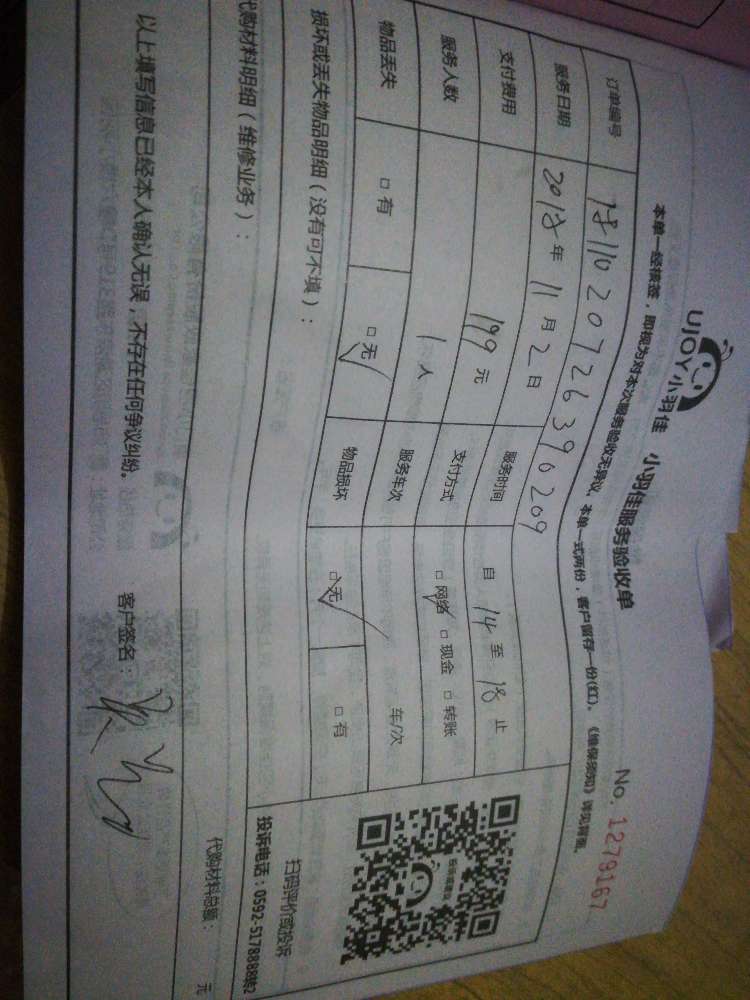 UJOY小羽佳 小羽佳服务验收单 No. 1279167
本单一经核签，即视为对本次服务验收无异议。本单一式两份，客户留存一份(红)。《维保须知》详见背面。
订单编号 1811020726390209
服务日期 2018年11月2日 服务时间 自14至18止
支付费用 199元 支付方式 □网络 □现金 □转账
服务人数 1人 服务车次 车/次
物品丢失 □有 □无 物品损坏 □无 □有
损坏或丢失物品明细（没有可不填）：
扫码评价或投诉
投诉电话：0592-5178888转2
代购材料明细（维修业务）：
代购材料总额： 元
以上填写信息已经本人确认无误，不存在任何争议纠纷。 客户签名：